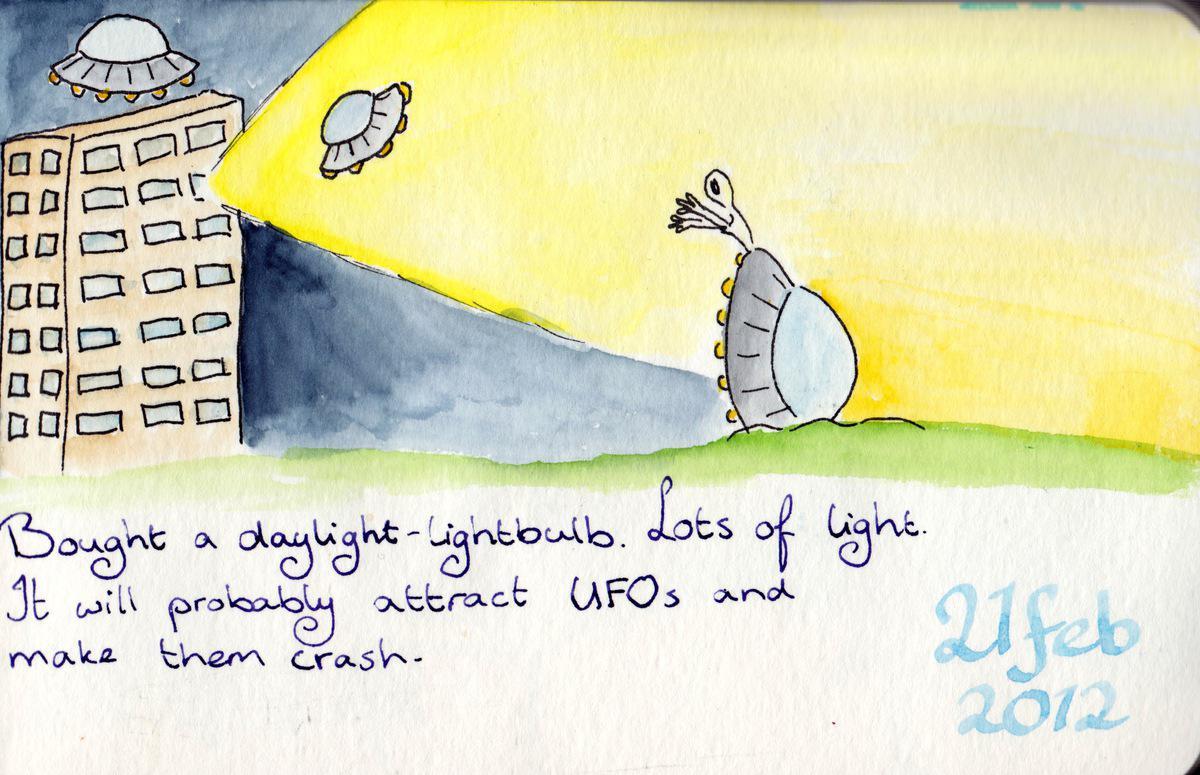 Bought a daylight-lightbulb. Lots of light.
It will probably attract UFOs and
make them crash.
21 feb
2012